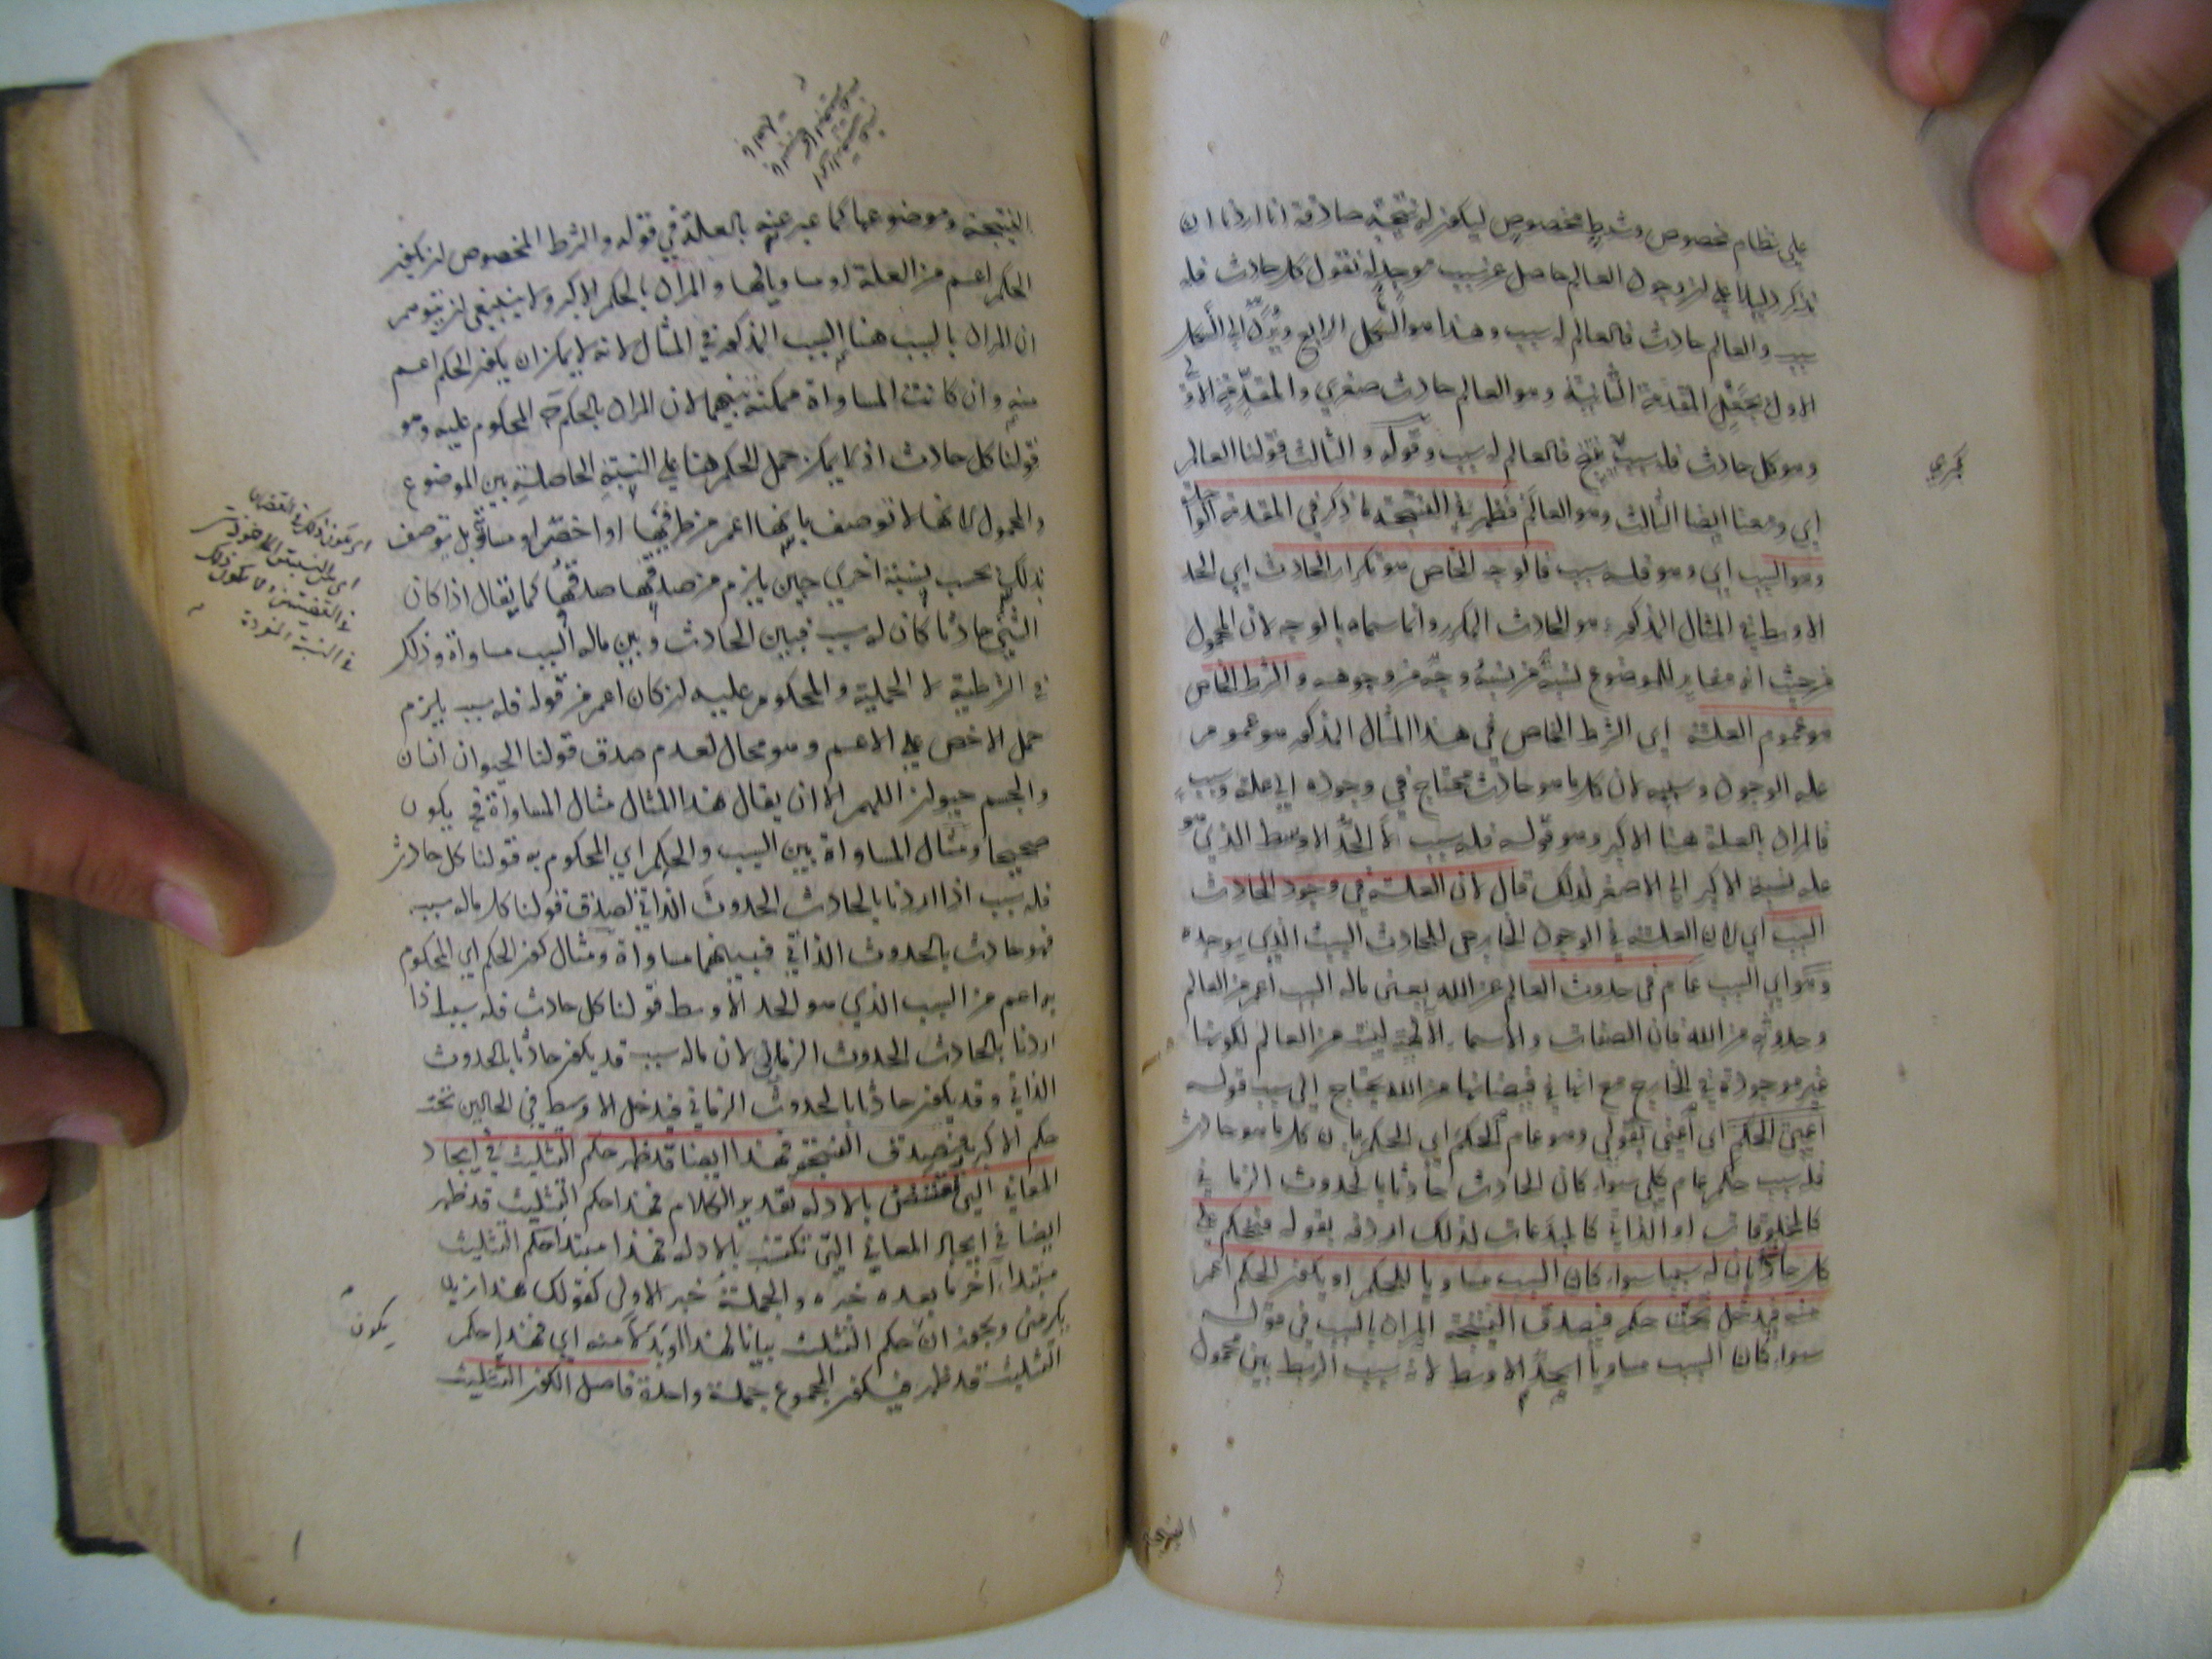 على نظام مخصوص وشرط مخصوص ليكون له نتيجة صادقة انا اردنا ان
نذكر دليلا على ان وجود العالم حاصل عن سبب موجد له نقول كل حادث فله
سبب والعالم حادث فالعالم له سبب وهذا هو الشكل الرابع ويرد الى الشكل
الاول بجعل المقدمة الثانية وهو العالم حادث صغرى والمقدمة الاولى
وهو كل حادث فله سبب ينتج فالعالم له سبب وقوله والثالث قولنا العالم
كبرى
اي ومعنا ايضا الثالث وهو العالم فظهر في النتيجة ما ذكر في المقدمة الواحدة
وهو السبب اي وهو فله سبب فالوجه الخاص هو تكرار الحادث اي الحد
الاوسط في المثال المذكور هو الحادث المكرر وانما سماه بالوجه لان المحمول
من حيث انه مغاير للموضوع نسبة من نسبه وجه من وجوهه والشرط الخاص
هو عموم العلة اي الشرط الخاص في هذا المثال المذكور هو عموم
علة الوجود وسببه لان كل ما هو حادث محتاج في وجوده الى علة وسبب
فالمراد بالعلة هنا الاكبر وهو قوله فله سبب لا الحد الاوسط الذي هو
علة نسبة الاكبر الى الاصغر لذلك قال لان العلة في وجود الحادث
السبب اي لان العلة في الوجود الخارجي للحادث السبب الذي يوجده
وهو اي السبب عام في حدوث العالم عن الله يعني ماله السبب اعم من العالم
وحدوثه من الله فان الصفات والاسماء الالهية ليست من العالم لكونها
غير موجودة في الخارج مع انها في فيضانها من الله يحتاج الى سبب قوله
اعني الحكم اي اعني بقولي وهو عام الحكم اي الحكم بان كل ما هو حادث
فله سبب حكم عام كلي سواء كان الحادث حادثا بالحدوث الزماني
كالمخلوقات او الذاتي كالمبدعات لذلك اردفه بقوله فنحكم على
كل حادث بان له سببا سواء كان السبب مساويا للحكم او يكون الحكم اعم
منه فيدخل تحت حكمه فيصدق النتيجة المراد بالسبب في قوله
سواء كان السبب مساويا الحد الاوسط لانه سبب الربط بين محمول
النتيجة
النتيجة وموضوعها كما عبر عنه بالعلة في قوله والشرط المخصوص ان يكون
الحكم اعم من العلة او مساويا لها والمراد بالحكم الاكبر ولا ينبغي ان يتوهم
ان المراد بالسبب هنا السبب المذكور في المثال لانه لا يمكن ان يكون الحكم اعم
منه وان كانت المساواة ممكنة بينهما لان المراد بالحكم ثمه المحكوم عليه وهو
قولنا كل حادث اذ لا يمكن حمل الحكم هنا على النسبة الحاصلة بين الموضوع
والمحمول لانها لا توصف بانها اعم من طرفيها او اخص او مساو بل توصف
بذلك بحسب نسبة اخرى حين يلزم من صدقها صدقها كما يقال اذا كان
الشيء حادثا كان له سبب فبين الحادث وبين ماله السبب مساواة وذلك
في الشرطية لا الحملية والمحكوم عليه ان كان اعم من قوله فله سبب يلزم
حمل الاخص على الاعم وهو محال لعدم صدق قولنا الحيوان انسان
والجسم حيوان اللهم الا ان يقال هذا المثال مثال المساواة فح يكون
صحيحا ومثال المساواة بين السبب والحكم اي المحكوم به قولنا كل حادث
فله سبب اذا اردنا بالحادث الحدوث الذاتي لصدق قولنا كل ماله سبب
فهو حادث بالحدوث الذاتي فبينهما مساواة ومثال كون الحكم اي المحكوم
به اعم من السبب الذي هو الحد الاوسط قولنا كل حادث فله سبب اذا
اردنا بالحادث الحدوث الزماني لان ماله سبب قد يكون حادثا بالحدوث
الذاتي وقد يكون حادثا بالحدوث الزماني فيدخل الاوسط في الحالين تحت
حكم الاكبر فيصدق النتيجة فهذا ايضا قد ظهر حكم التثليث في ايجاد
المعاني التي تقتنص بالادلة تقدير الكلام فهذا حكم التثليث قد ظهر
ايضا في ايجاد المعاني التي تكتسب بالادلة فهذا مبتدا حكم التثليث
مبتدا آخر ما بعده خبره والجملة خبر الاولى كقولك هذا زيد
يكرمني ويجوز ان حكم التثليث بيانا لهذا او بدلا منه اي فهذا حكم
يكون
التثليث قد ظهر فيكون المجموع جملة واحدة فاصل الكون التثليث